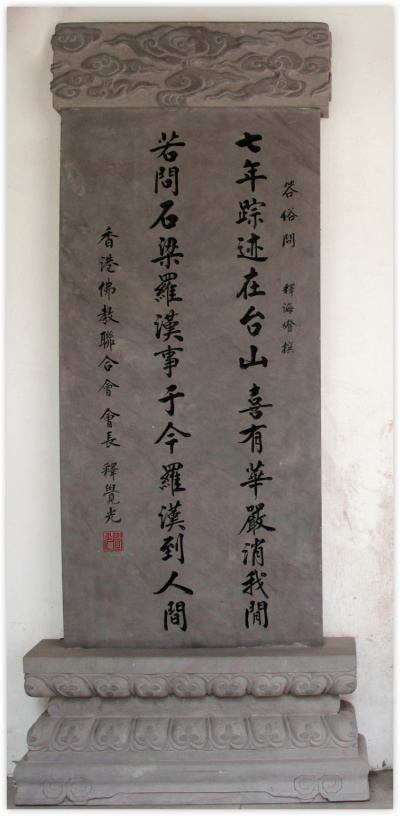 答俗問 釋海燈撰
七年踪迹在台山喜有華嚴消我閒
若問石梁羅漢事于今羅漢到人間
香港佛教聯合會會長釋覺光